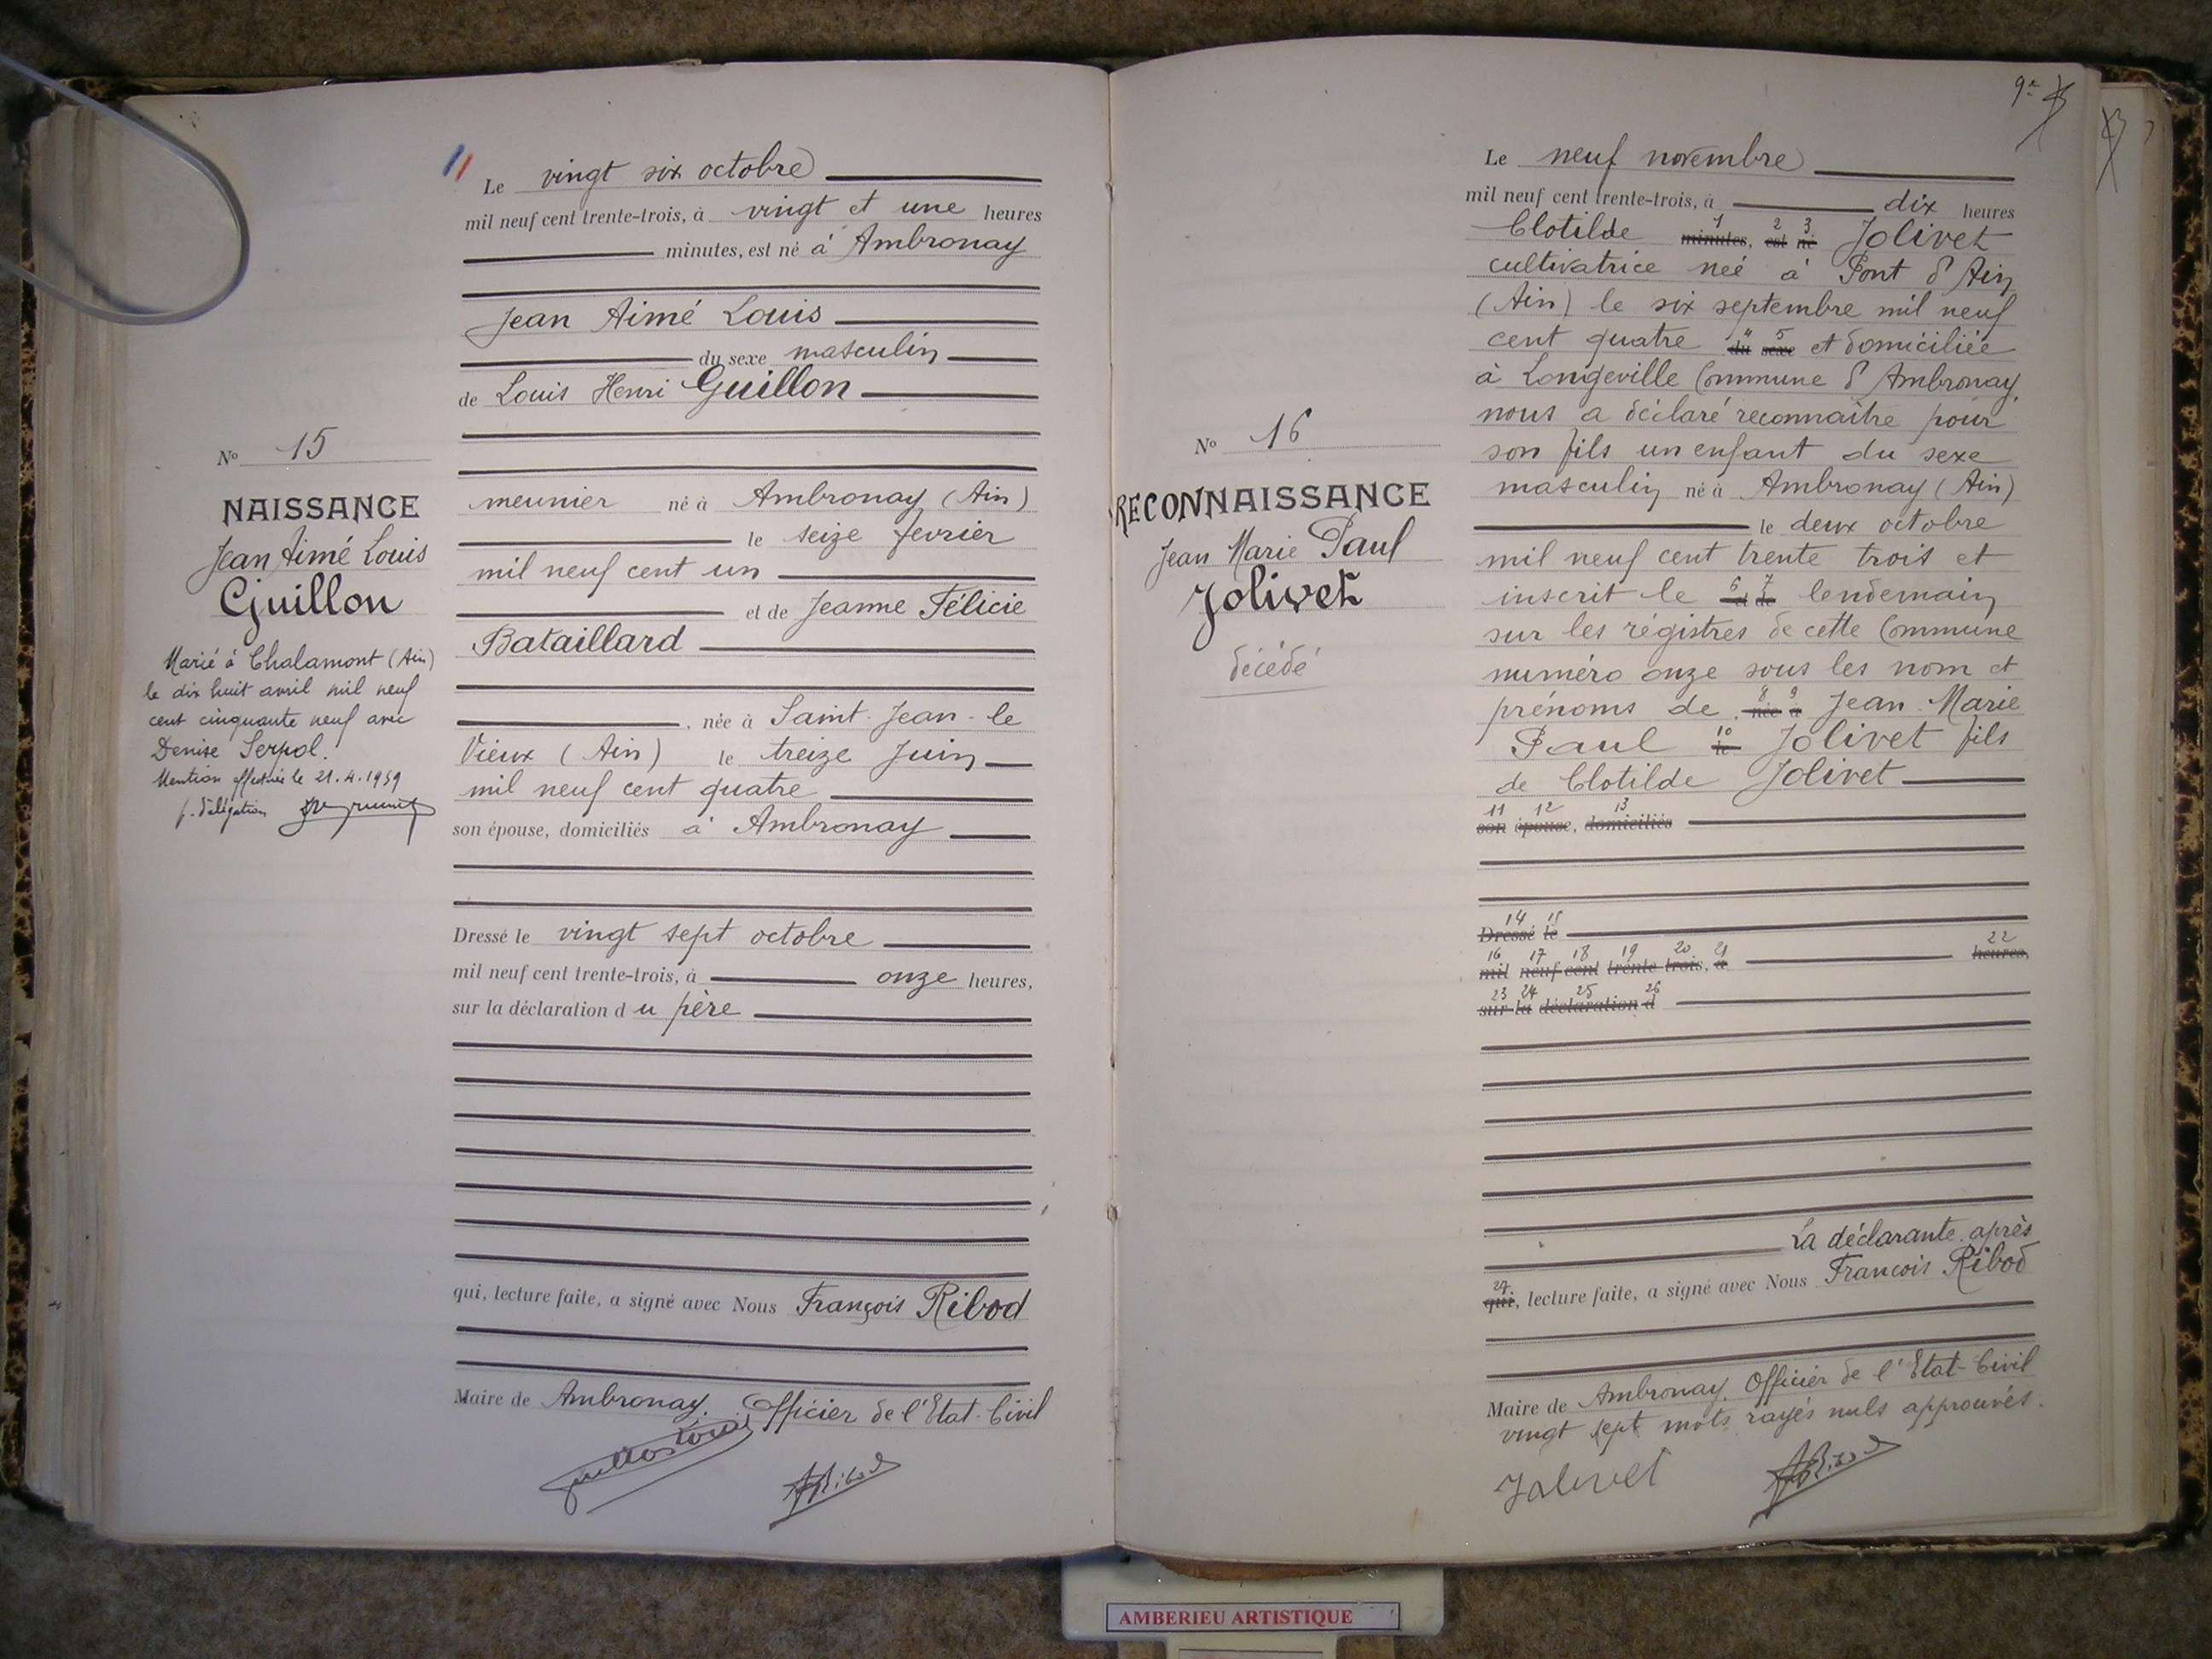 Le vingt six octobre
mil neuf cent trente-trois, à vingt et une heures
minutes, est né à Ambronay
Jean Aimé Louis
du sexe masculin
de Louis Henri Guillon
meunier né à Ambronay (Ain)
le seize fevrier
mil neuf cent un
et de Jeanne Félicie
Bataillard
, née à Saint-Jean-le
Vieux (Ain) le treize Juin
mil neuf cent quatre
son épouse, domiciliés à Ambronay
Dressé le vingt sept octobre
mil neuf cent trente-trois, à onze heures,
sur la déclaration d u père
qui, lecture faite, a signé avec Nous François Ribod
Maire de Ambronay. Officier de l'Etat-Civil
Guillon Louis
Ribod
No 15
NAISSANCE
Jean Aimé Louis
Guillon
Marié à Chalamont (Ain)
le dix huit avril mil neuf
cent cinquante neuf avec
Denise Serpol.
Mention effectuée le 21.4.1959
p. délégation
9e
Le neuf novembre
mil neuf cent trente-trois, à dix heures
Clotilde minutes, est né Jolivet
1 2 3
cultivatrice neé à Pont d'Ain
(Ain) le six septembre mil neuf
cent quatre du sexe et domiciliée
4 5
à Longeville Commune d'Ambronay,
nous a déclaré reconnaître pour
son fils un enfant du sexe
masculin né à Ambronay (Ain)
le deux octobre
mil neuf cent trente trois et
inscrit le et de lendemain
6 7
sur les régistres de cette Commune
numéro onze sous les nom et
prénoms de , née à Jean-Marie
8 9
Paul le Jolivet fils
10
de Clotilde Jolivet
11 12 13
son épouse, domiciliés
14 15
Dressé le
16 17 18 19 20 21 22
mil neuf cent trente-trois, à heures,
23 24 25 26
sur la déclaration d
La déclarante après
27
qui, lecture faite, a signé avec Nous Francois Ribod
Maire de Ambronay. Officier de l'Etat-Civil
vingt sept mots rayés nuls approuvés.
Jolivet
Ribod
No 16
RECONNAISSANCE
Jean Marie Paul
Jolivet
décédé
AMBERIEU ARTISTIQUE